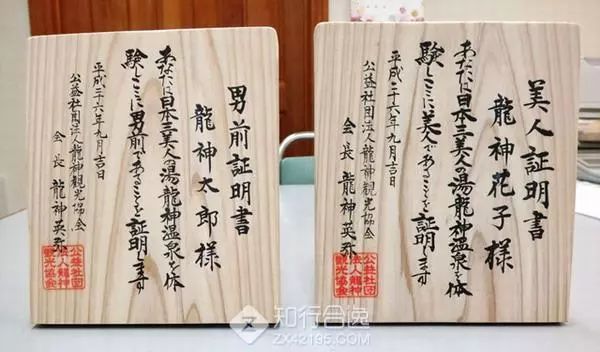 男前証明書
龍神太郎様
あなたは日本三美人の湯龍神温泉を体
験しここに男前であることを証明します
平成二十六年九月吉日
公益社団法人龍神観光協会
会長 龍神英弥
公益社団
法人龍神
観光協会
美人証明書
龍神花子様
あなたは日本三美人の湯龍神温泉を体
験しここに美人であることを証明します
平成二十六年九月吉日
公益社団法人龍神観光協会
会長 龍神英弥
公益社団
法人龍神
観光協会
知行合逸
ZX42195.COM